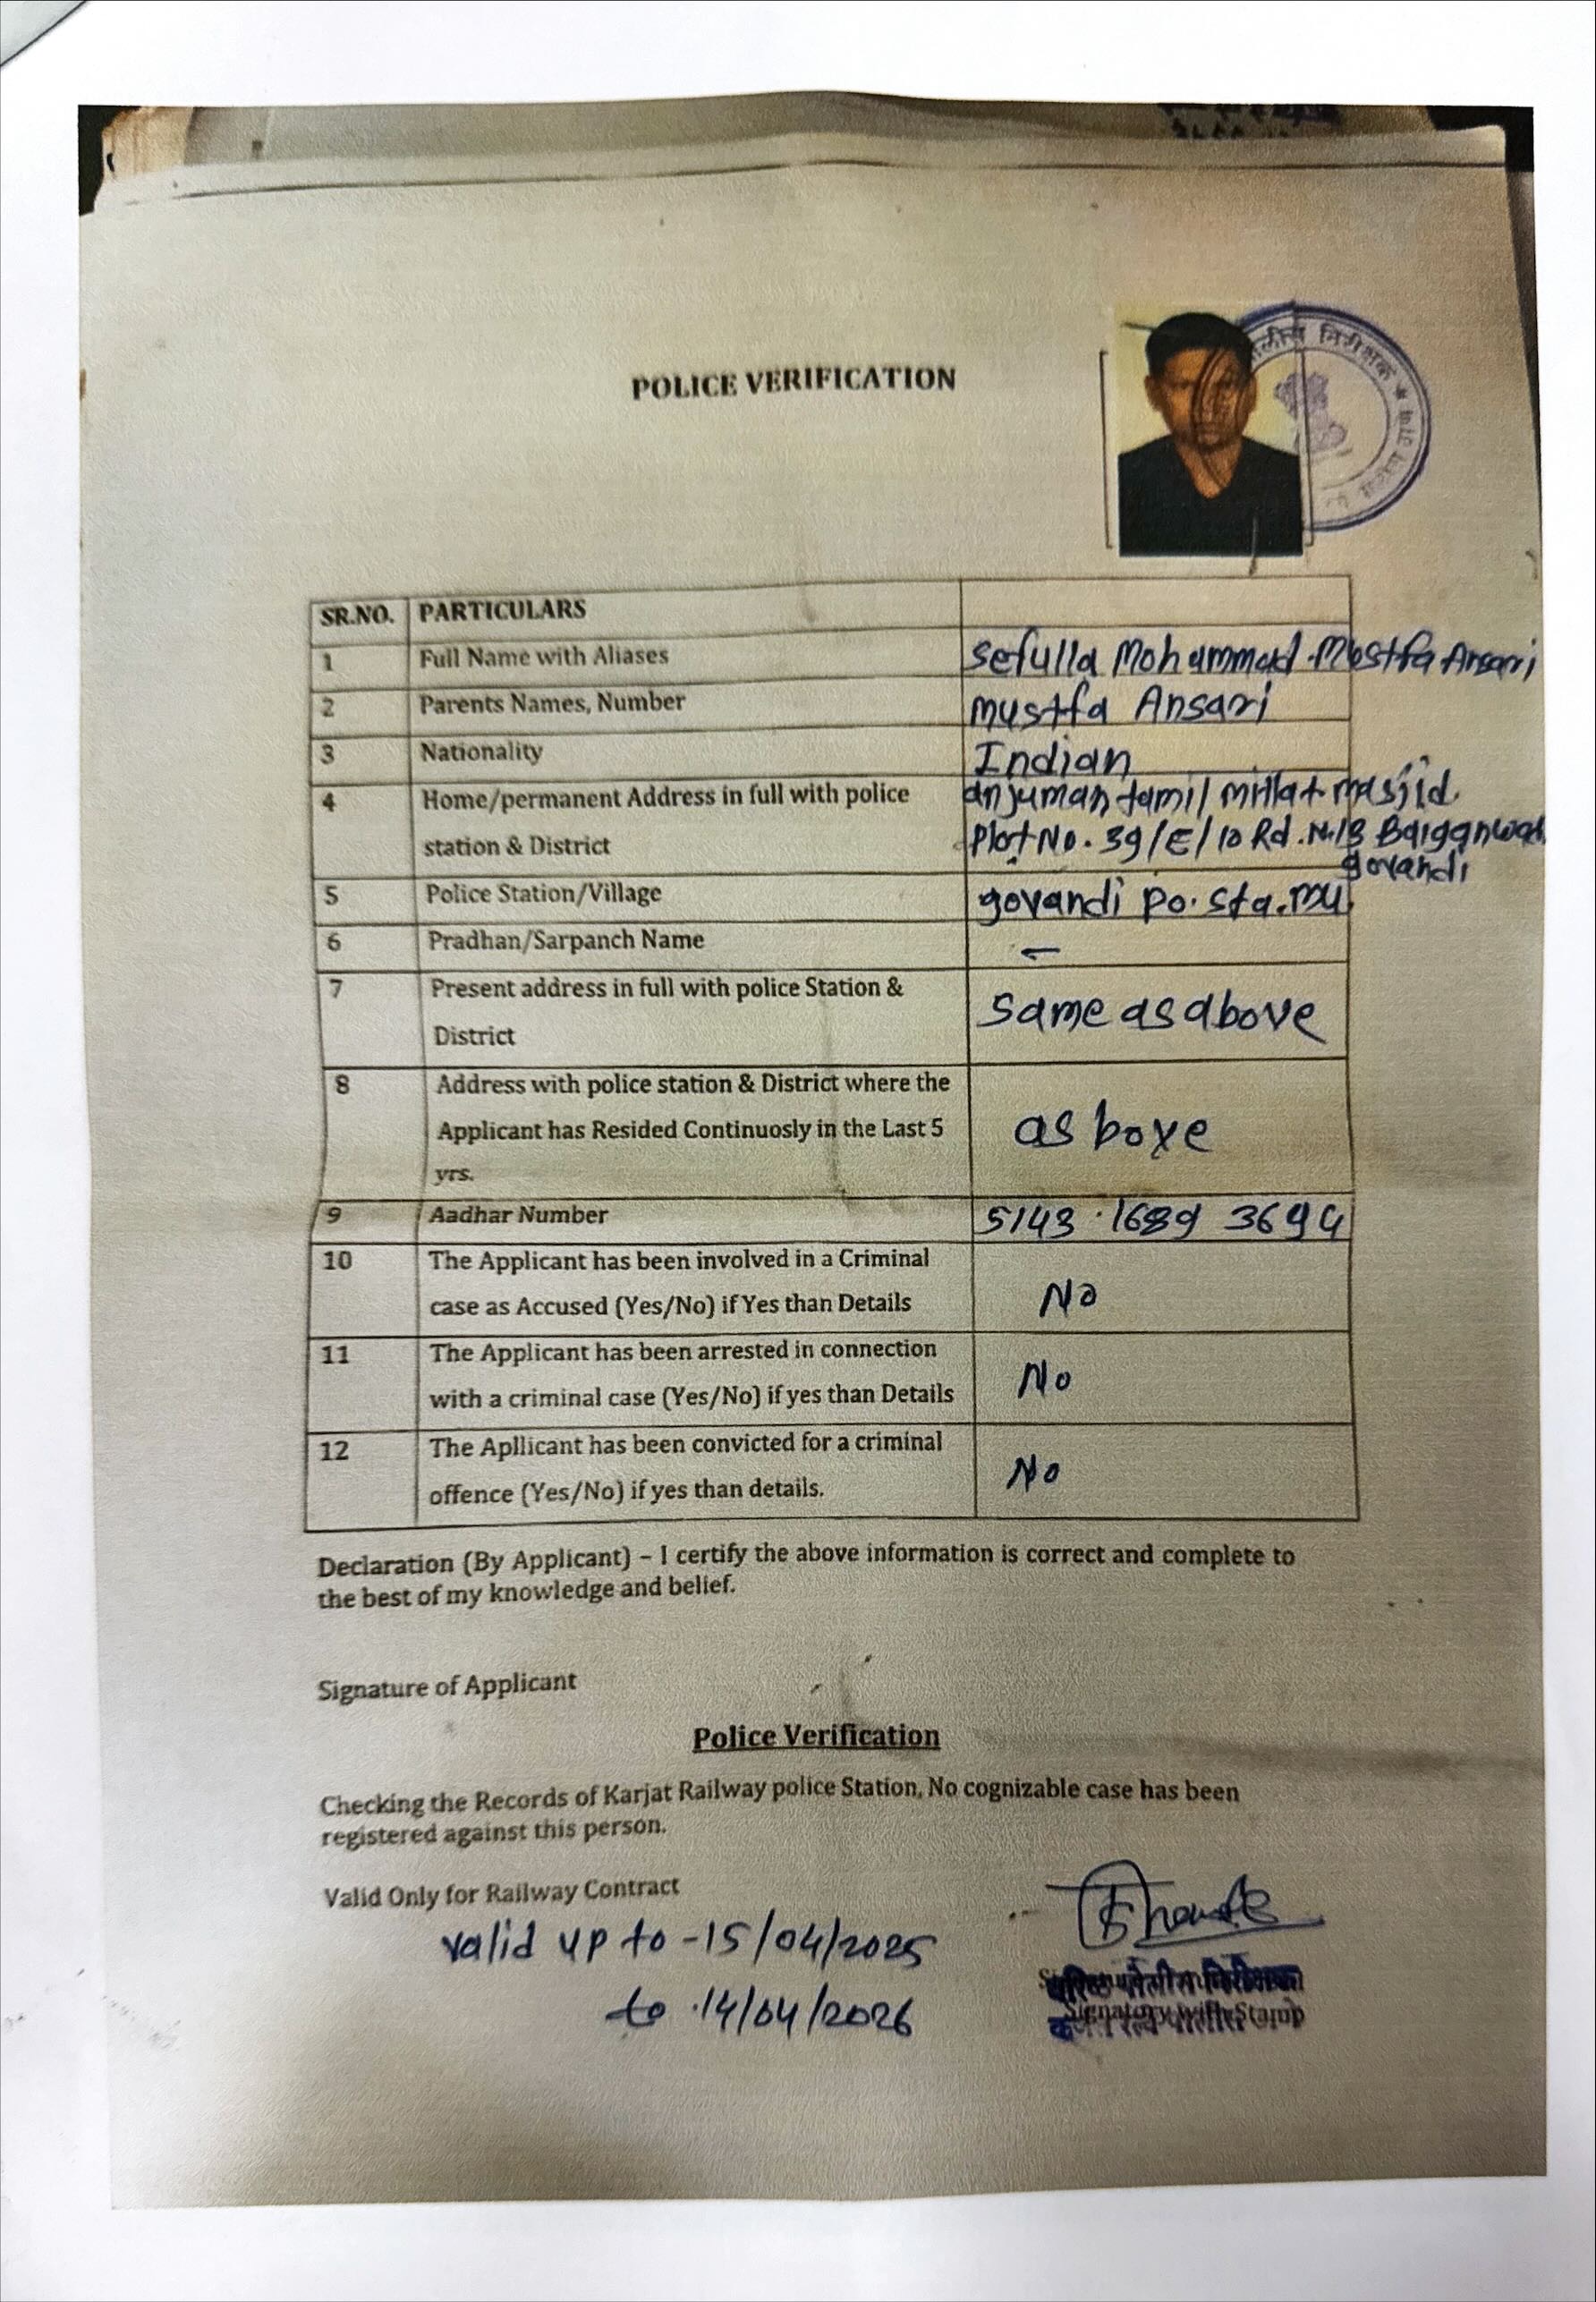 POLICE VERIFICATION
पोलीस निरीक्षक
SR.NO. PARTICULARS
1 Full Name with Aliases Sefulla Mohammad Mustfa Ansari
2 Parents Names, Number Mustfa Ansari
3 Nationality Indian
4 Home/permanent Address in full with police anjuman tamil millat masjid
station & District Plot No. 39/E/10 Rd. N.13 Baiganwadi
govandi
5 Police Station/Village govandi po. sta. mu
6 Pradhan/Sarpanch Name –
7 Present address in full with police Station & same as above
District
8 Address with police station & District where the
Applicant has Resided Continuosly in the Last 5 as boxe
yrs.
9 Aadhar Number 5143 1689 3694
10 The Applicant has been involved in a Criminal
case as Accused (Yes/No) if Yes than Details No
11 The Applicant has been arrested in connection
with a criminal case (Yes/No) if yes than Details No
12 The Apllicant has been convicted for a criminal
offence (Yes/No) if yes than details. No
Declaration (By Applicant) – I certify the above information is correct and complete to
the best of my knowledge and belief.
Signature of Applicant
Police Verification
Checking the Records of Karjat Railway police Station, No cognizable case has been
registered against this person.
Valid Only for Railway Contract
valid up to - 15/04/2025
to 14/04/2026
पोलीस निरीक्षक
Signatory with Stamp